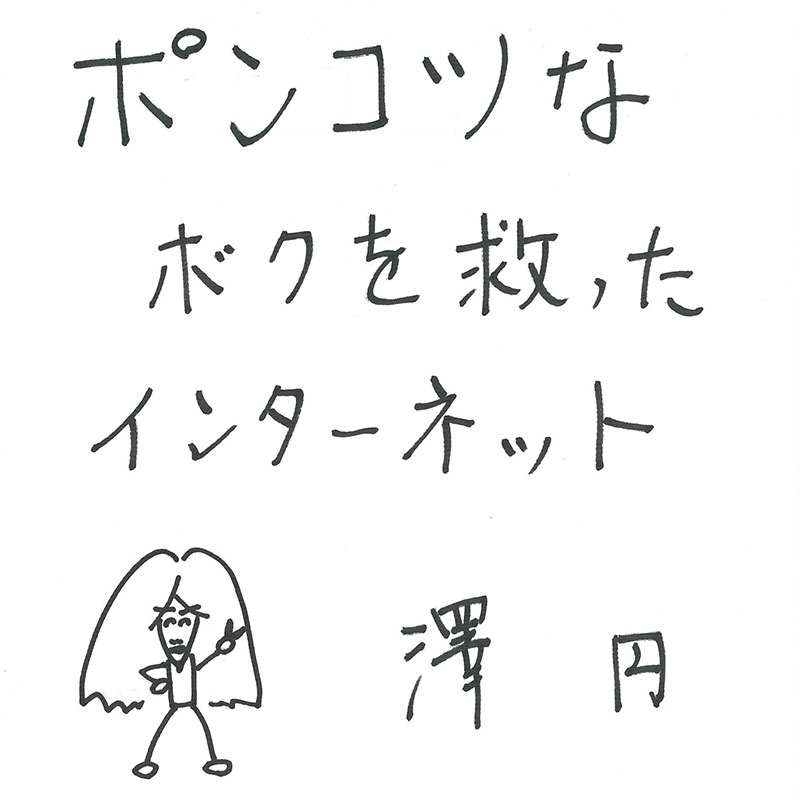 ポンコツな
ボクを救った
インターネット
澤 円